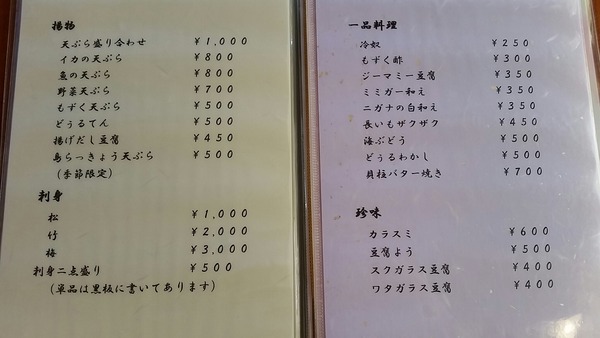 揚物
天ぷら盛り合わせ ¥1,000
イカの天ぷら ¥800
魚の天ぷら ¥800
野菜天ぷら ¥700
もずく天ぷら ¥500
どぅるてん ¥500
揚げだし豆腐 ¥450
島らっきょう天ぷら ¥500
(季節限定)
刺身
松 ¥1,000
竹 ¥2,000
梅 ¥3,000
刺身二点盛り ¥500
(単品は黒板に書いてあります)
一品料理
冷奴 ¥250
もずく酢 ¥300
ジーマミー豆腐 ¥350
ミミガー和え ¥350
ニガナの白和え ¥350
長いもザクザク ¥450
海ぶどう ¥500
どぅるわかし ¥500
貝柱バター焼き ¥700
珍味
カラスミ ¥600
豆腐よう ¥500
スクガラス豆腐 ¥400
ワタガラス豆腐 ¥400